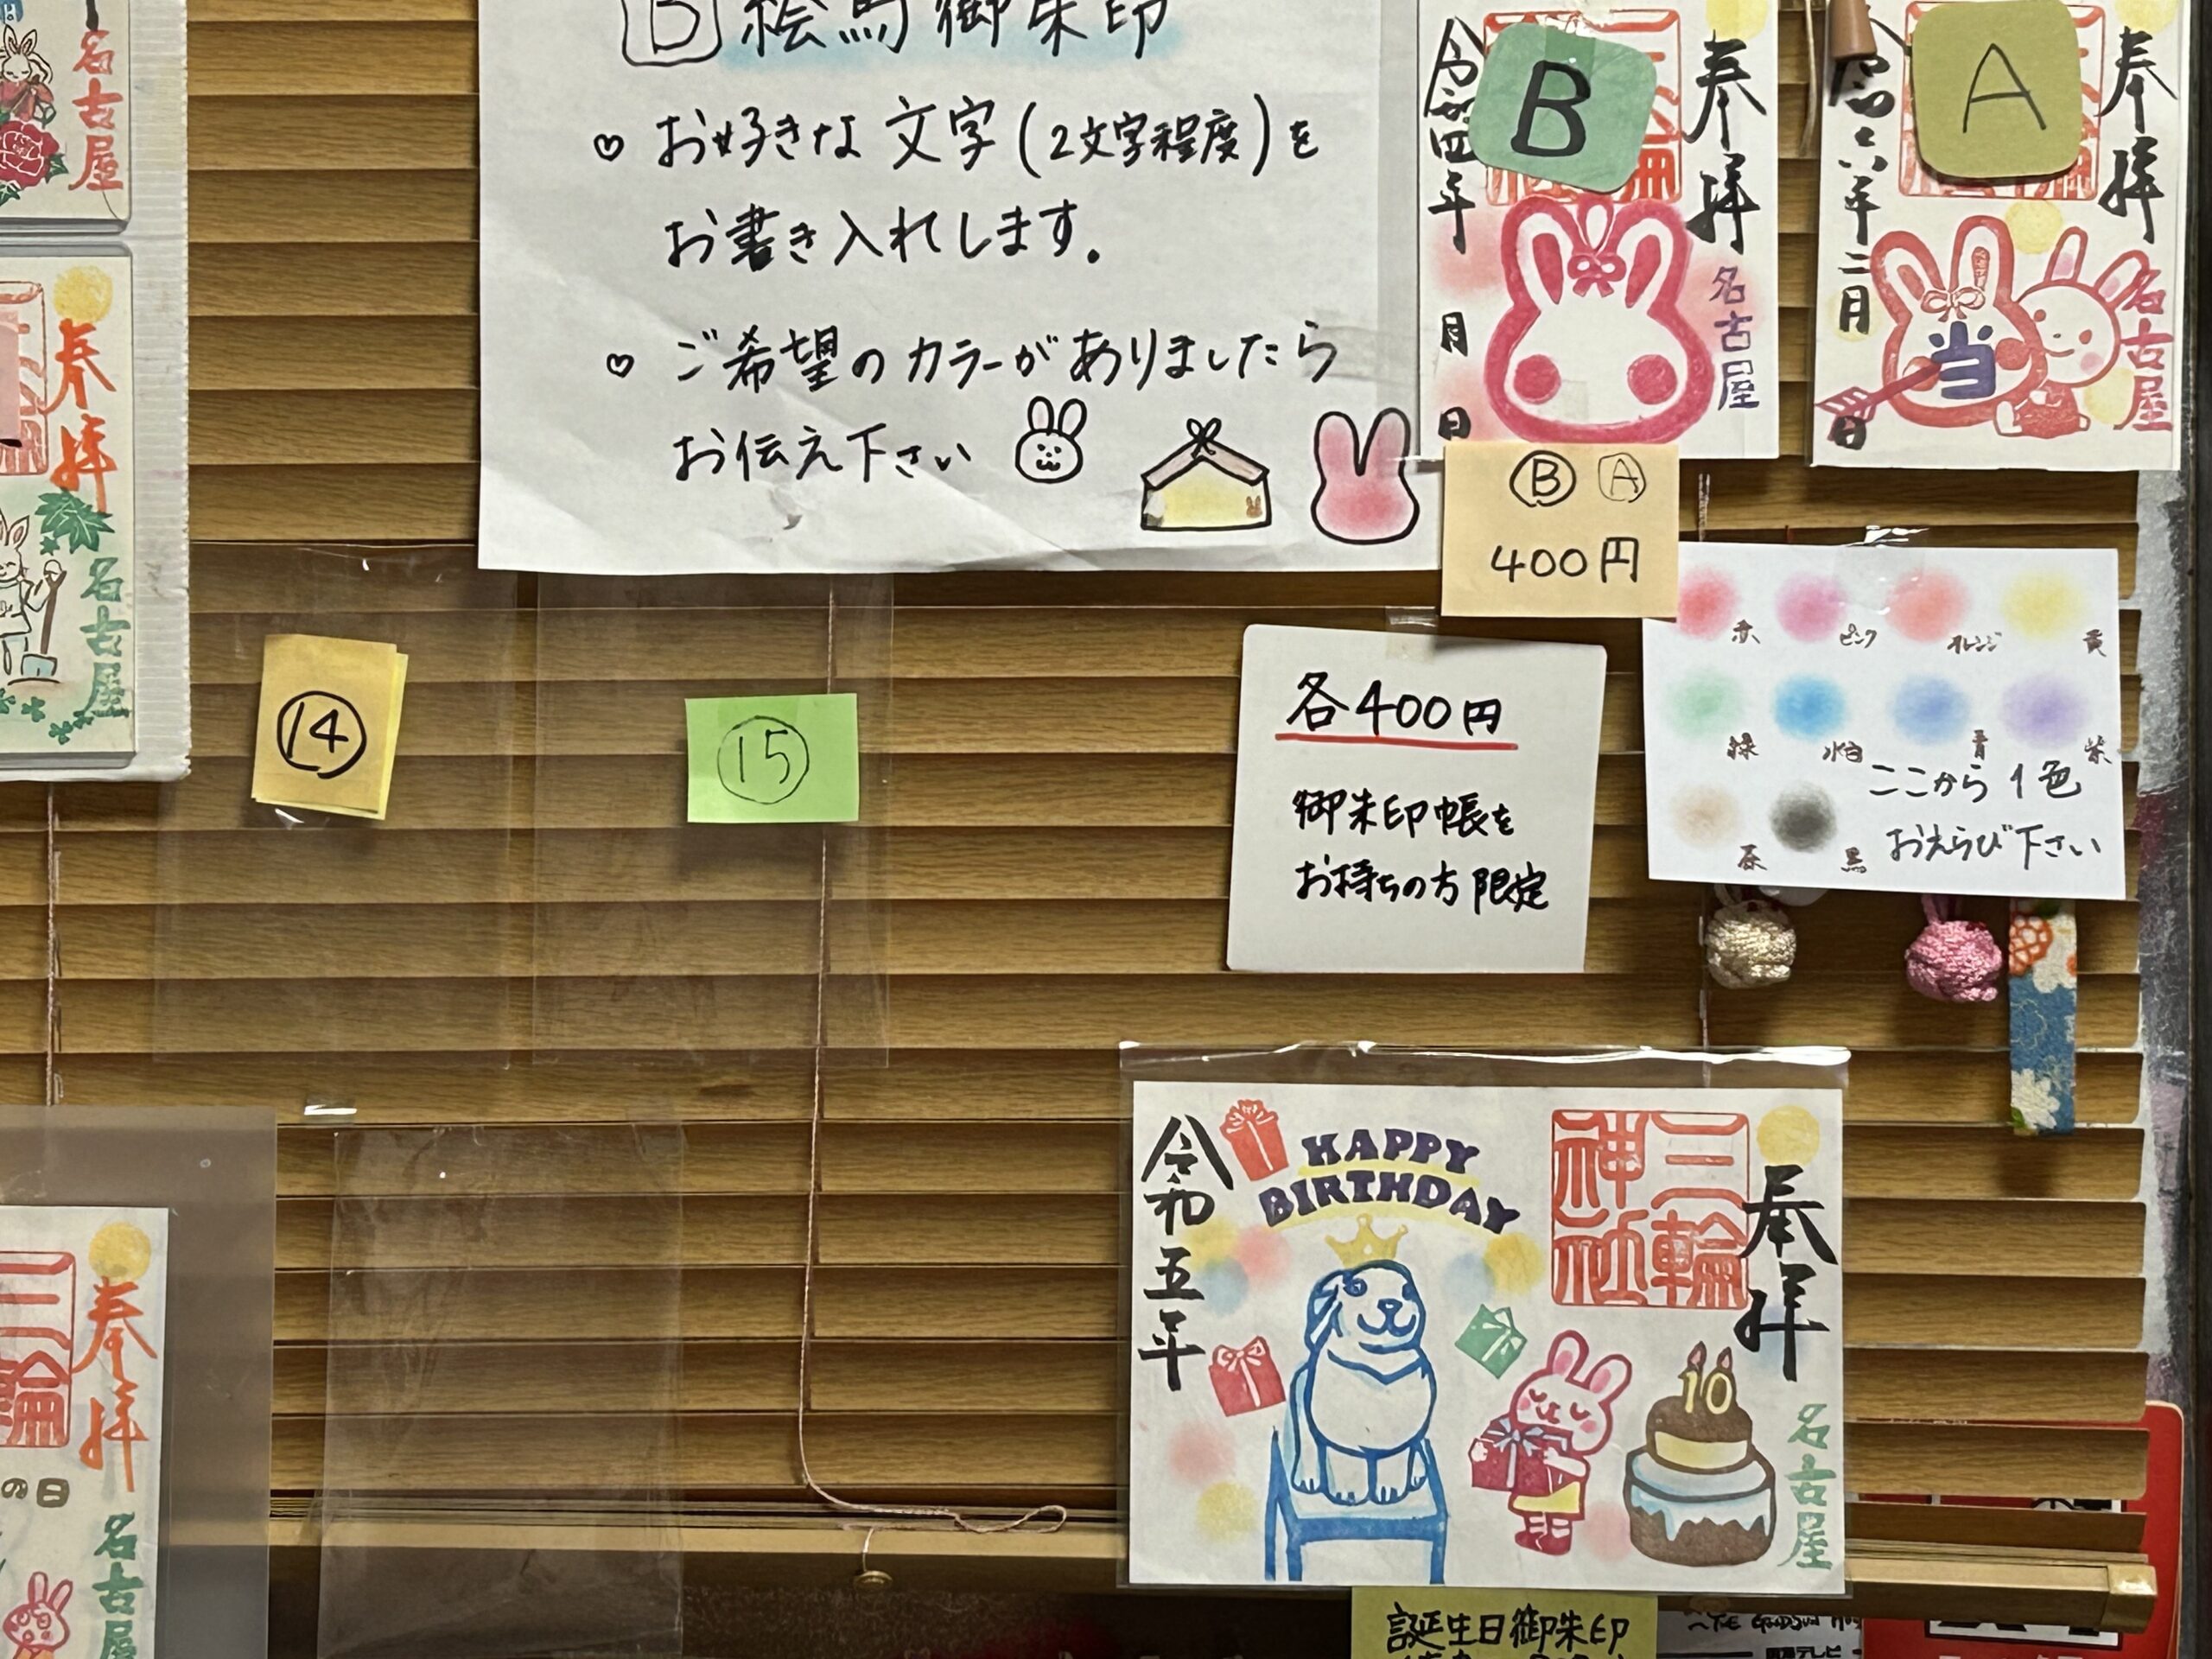 名古屋
奉拝
名古屋
B 絵馬御朱印
♡ お好きな文字(2文字程度)を
お書き入れします。
♡ ご希望のカラーがありましたら
お伝え下さい
B
奉拝
令和四年 月 日
名古屋
A
奉拝
令和六年二月 日
名古屋
当
Ⓑ Ⓐ
400円
⑭
⑮
各400円
御朱印帳を
お持ちの方限定
赤 ピンク オレンジ 黄
緑 水色 青 紫
茶 黒
ここから1色
おえらび下さい
奉拝
三輪神社
HAPPY
BIRTHDAY
令和五年
10
名古屋
誕生日御朱印
奉拝
の日
名古屋
テレビ